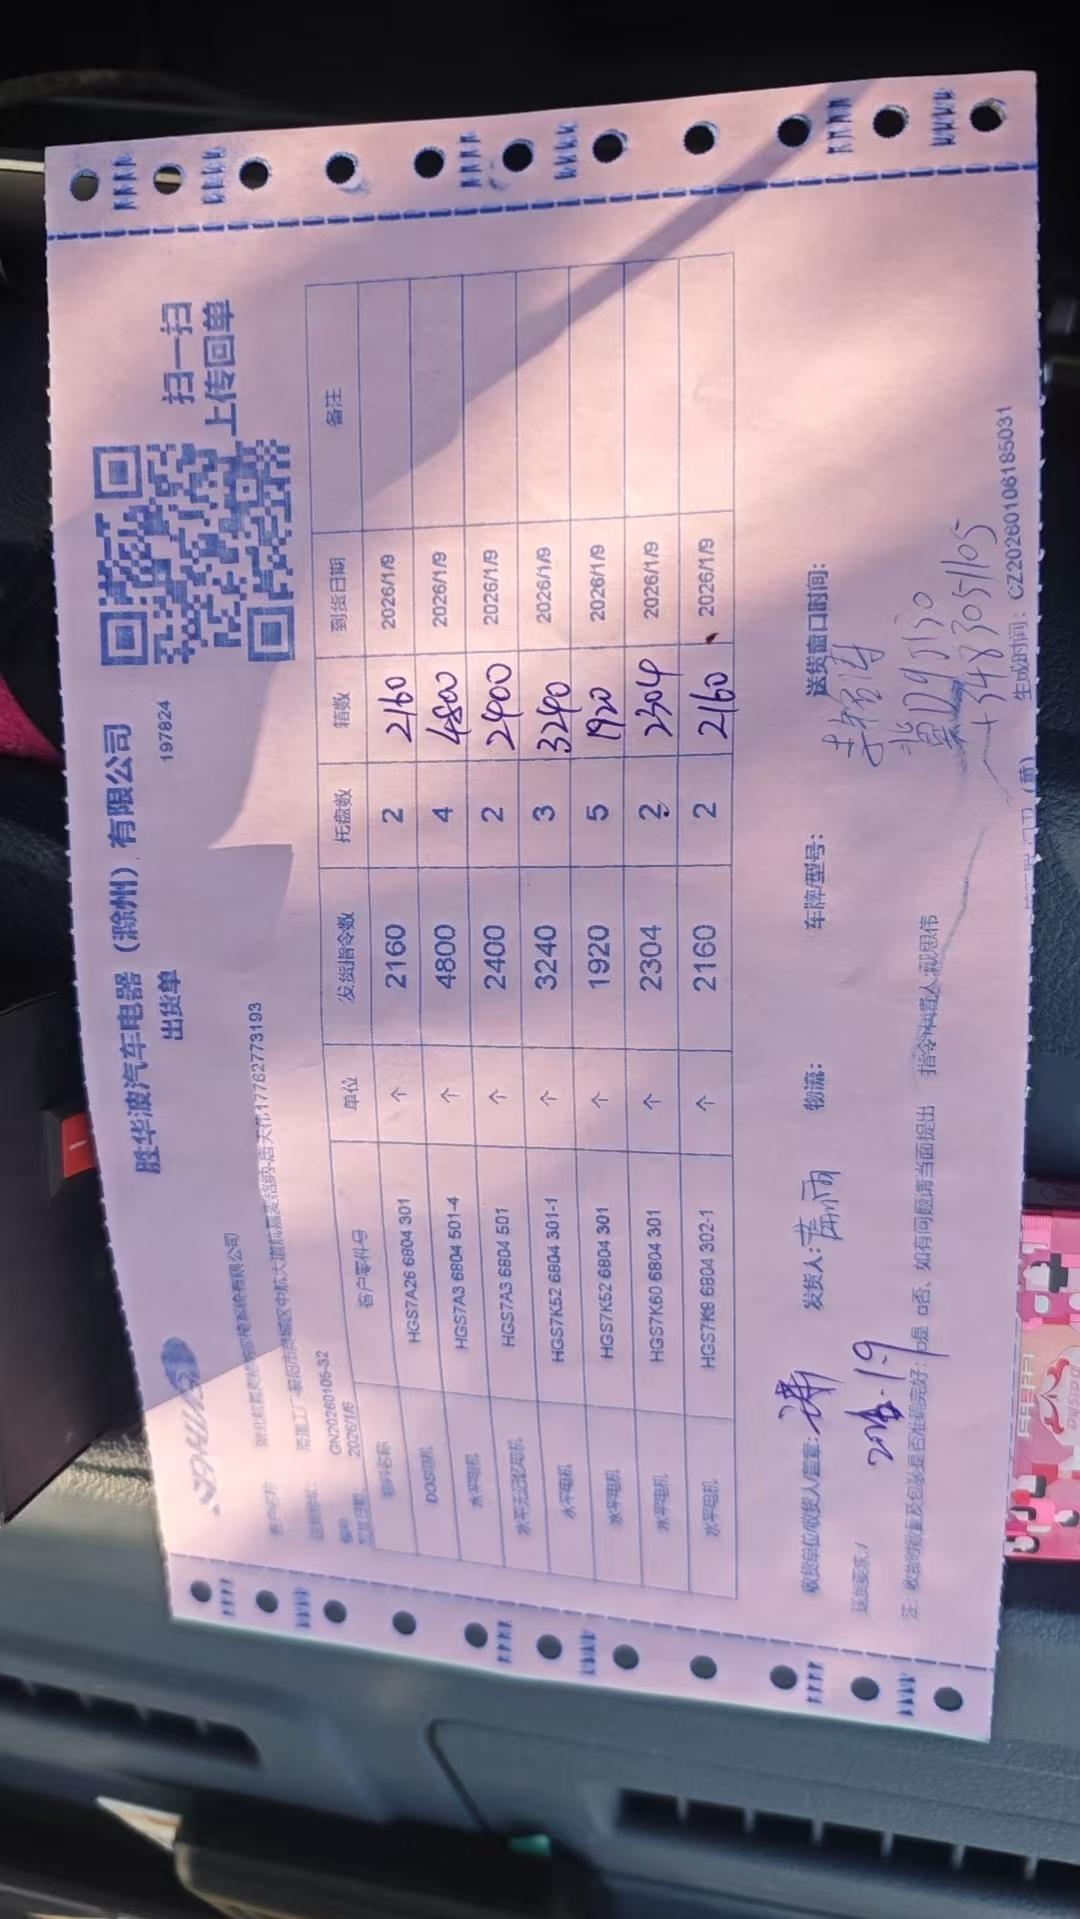 胜华波汽车电器（滁州）有限公司
出货单
197824
扫一扫
上传回单
客户名称
GN20260105-32
2026/1/6
客户零件号 单位 发货指令数 托盘数 箱数 到货日期 备注
DOS电机 HGS7A26 6804 301 个 2160 2 2160 2026/1/9
水平电机 HGS7A3 6804 501-4 个 4800 4 4800 2026/1/9
水平无记忆电机 HGS7A3 6804 501 个 2400 2 2400 2026/1/9
水平电机 HGS7K52 6804 301-1 个 3240 3 3240 2026/1/9
水平电机 HGS7K52 6804 301 个 1920 5 1920 2026/1/9
水平电机 HGS7K60 6804 301 个 2304 2 2304 2026/1/9
水平电机 HGS7K8 6804 302-1 个 2160 2 2160 2026/1/9
收货单位/收货人/盖章： 发货人： 物流： 车牌/型号： 送货窗口时间：
送货要求：/
注：收货时数量及包装是否准确完好：□是 □否，如有问题请当面提出
生成时间：CZ20260106185031